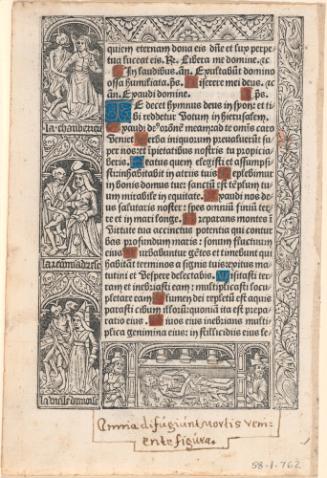 quiem eternam dona eis dñe et lux perpe
tua luceat eis. R. Libera me domine. ac
In laudibus. añ. Exultabūt domino
ossa humiliata. p̄s. Miserere mei deus. ac
añ. Exaudi domine. p̄s.
TE decet hymnus deus in syon: et ti
bi reddetur votum in hierusalem.
Exaudi deꝰ oronē meam: ad te omīs caro
veniet. Verba iniquorum preualuerūt su
per nos: et īpietatibus nostris tu propicia
beris. Beatus quem elegisti et assumpsi
sti: inhabitabit in atriis tuis. Replebimur
in bonis domus tue: sanctū est tēplum tu
um mirabile in equitate. Exaudi nos de
us salutaris noster: spes omniū finiū ter
re et in mari longe. Preparans montes ī
virtute tua accinctus potentia: qui contur
bas profundum maris: sonum fluctuum
eius. Turbabuntur gētes et timebunt qui
habitāt terminos a signis tuis: exitus ma
tutini et vespere delectabis. Visitasti ter
ram et inebriasti eam: multiplicasti locu
pletare eam. Flumen dei repletū est aquis
parasti cibum illorū: quoniā ita est prepa
ratio eius. Riuos eius inebrians multi
plica genimina eius: in stillicidiis eius le
la chanberiere
la recōmāderesse
la vielle damoiselle
Omnia difugiunt Mortis vem-
ente figura.
58-1-762